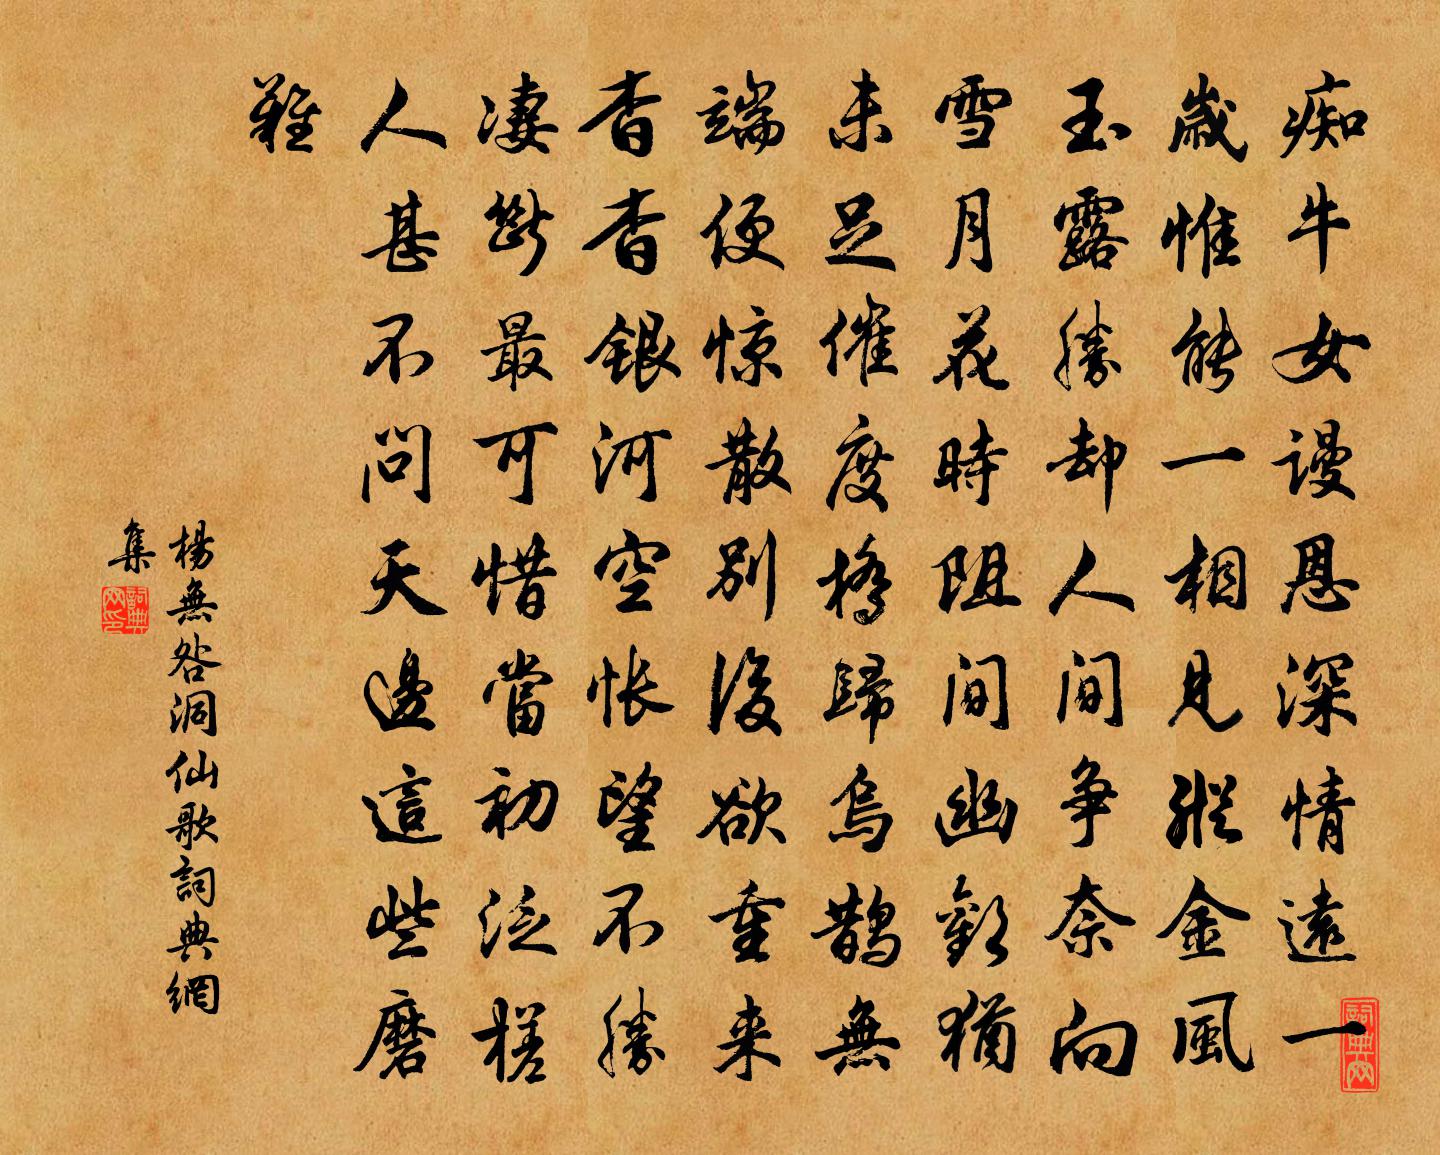 痴牛女謾恩深情遠一
歲惟能一相見縱金風
玉露勝却人間争奈向
雪月花時阻間幽歡猶
未足催度橋歸烏鵲無
端便惊散别後欲重来
杳杳銀河空怅望不勝
凄斷最可惜當初泛槎
人甚不問天邊這些磨
難
楊無咎洞仙歌詞典網
集
詞典网
詞典网印